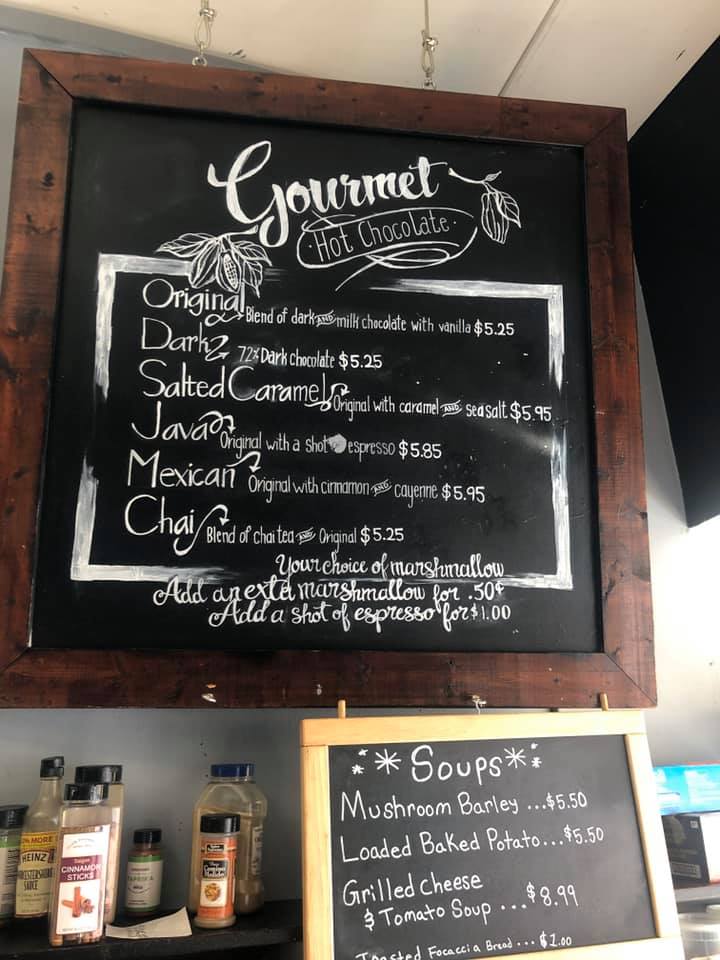 Gourmet
Hot Chocolate
Original Blend of dark AND milk chocolate with vanilla $5.25
Dark 72% Dark chocolate $5.25
Salted Caramel Original with caramel AND sea salt $5.95
Java Original with a shot espresso $5.85
Mexican Original with cinnamon AND cayenne $5.95
Chai Blend of chai tea AND Original $5.25
Your choice of marshmallow
Add an extra marshmallow for .50¢
Add a shot of espresso for $1.00
Soups
Mushroom Barley ...$5.50
Loaded Baked Potato...$5.50
Grilled cheese
& Tomato Soup ...$8.99
Toasted Focaccia Bread ... $1.00
HEINZ
SAUCE
Saigon
CINNAMON
STICKS